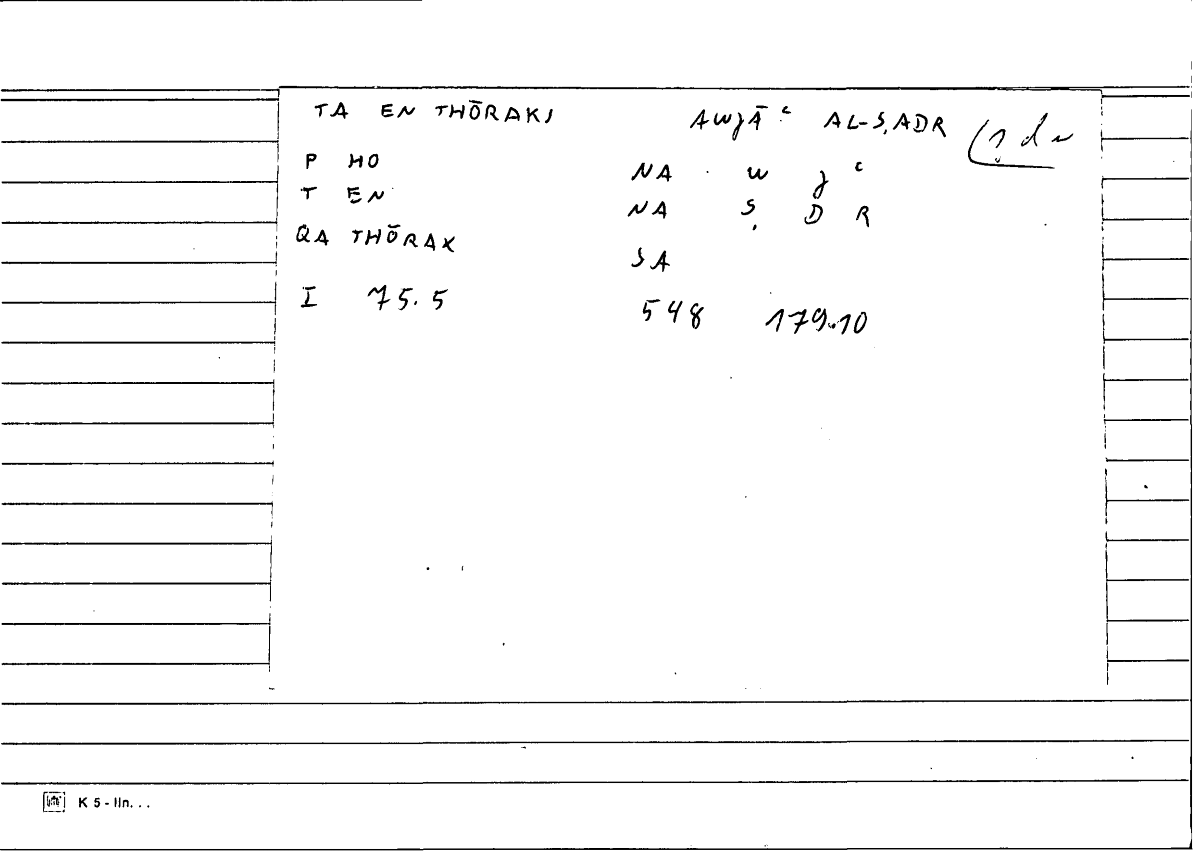 TA EN THŌRAKI AWJĀʿ AL-ṢADR
P HO NA w j ʿ
T EN NA Ṣ D R
QA THŌRAX SA
I 75.5 548 179.10
K 5 - lln. . .